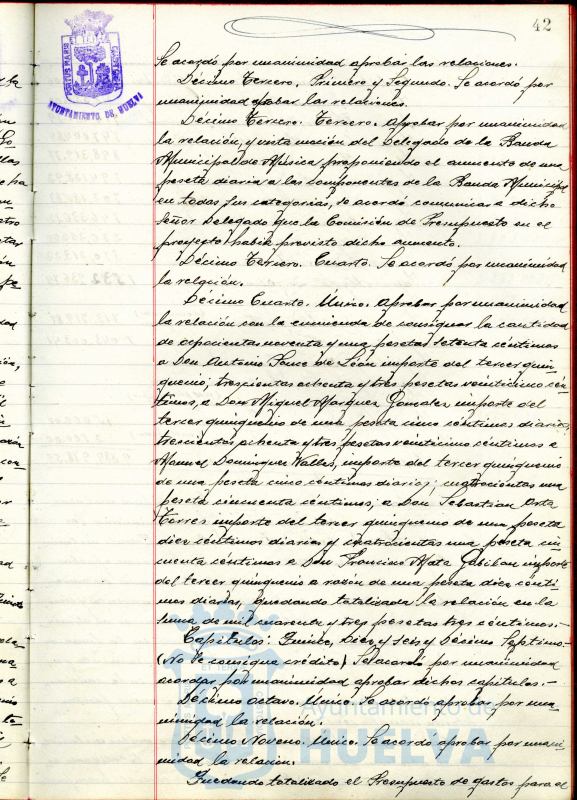 42
AYUNTAMIENTO DE HUELVA
Se acordó por unanimidad aprobar las relaciones.
Décimo Tercero. Primero y Segundo. Se acordó por
unanimidad aprobar las relaciones.
Décimo Tercero. Tercero. Aprobar por unanimidad
la relación, y vista moción del Delegado de la Banda
Municipal de Música proponiendo el aumento de una
peseta diaria a los componentes de la Banda Municipal
en todas sus categorías, se acordó comunicar a dicho
Señor Delegado que la Comisión de Presupuesto en el
proyecto había previsto dicho aumento.
Décimo Tercero. Cuarto. Se acordó por unanimidad
la relación.
Décimo Cuarto. Único. Aprobar por unanimidad
la relación con la enmienda de consignar la cantidad
de ochocientas noventa y una pesetas setenta céntimos
a Don Antonio Ponce de León importe del tercer quin
quenio; trescientas ochenta y tres pesetas veinticinco cén
timos, a Don Miguel Marquez Gonzalez importe del
tercer quinquenio de una peseta cinco céntimos diarios;
trescientas ochenta y tres pesetas veinticinco céntimos a
Manuel Dominguez Valles, importe del tercer quinquenio
de una peseta cinco céntimos diarios; cuatrocientas una
peseta cincuenta céntimos, a Don Sebastian Orta
Torres importe del tercer quinquenio de una peseta
diez céntimos diarios y cuatrocientas una peseta cin
cuenta céntimos a Don Francisco Mata Gabilan importe
del tercer quinquenio a razón de una peseta diez cénti
mos diarios, quedando totalizada la relación en la
suma de mil cuarenta y tres pesetas tres céntimos.-
Capítulos: Quince, Diez y seis y Décimo Septimo.-
(No se consigna crédito) Se acordó por unanimidad
acordar por unanimidad aprobar dichos capítulos.-
Décimo octavo. Único. Se acordó aprobar por una
nimidad la relación.
Décimo Noveno. Único. Se acordó aprobar por unani
midad la relación.
Quedando totalizado el Presupuesto de gastos para el
Ayuntamiento de
HUELVA